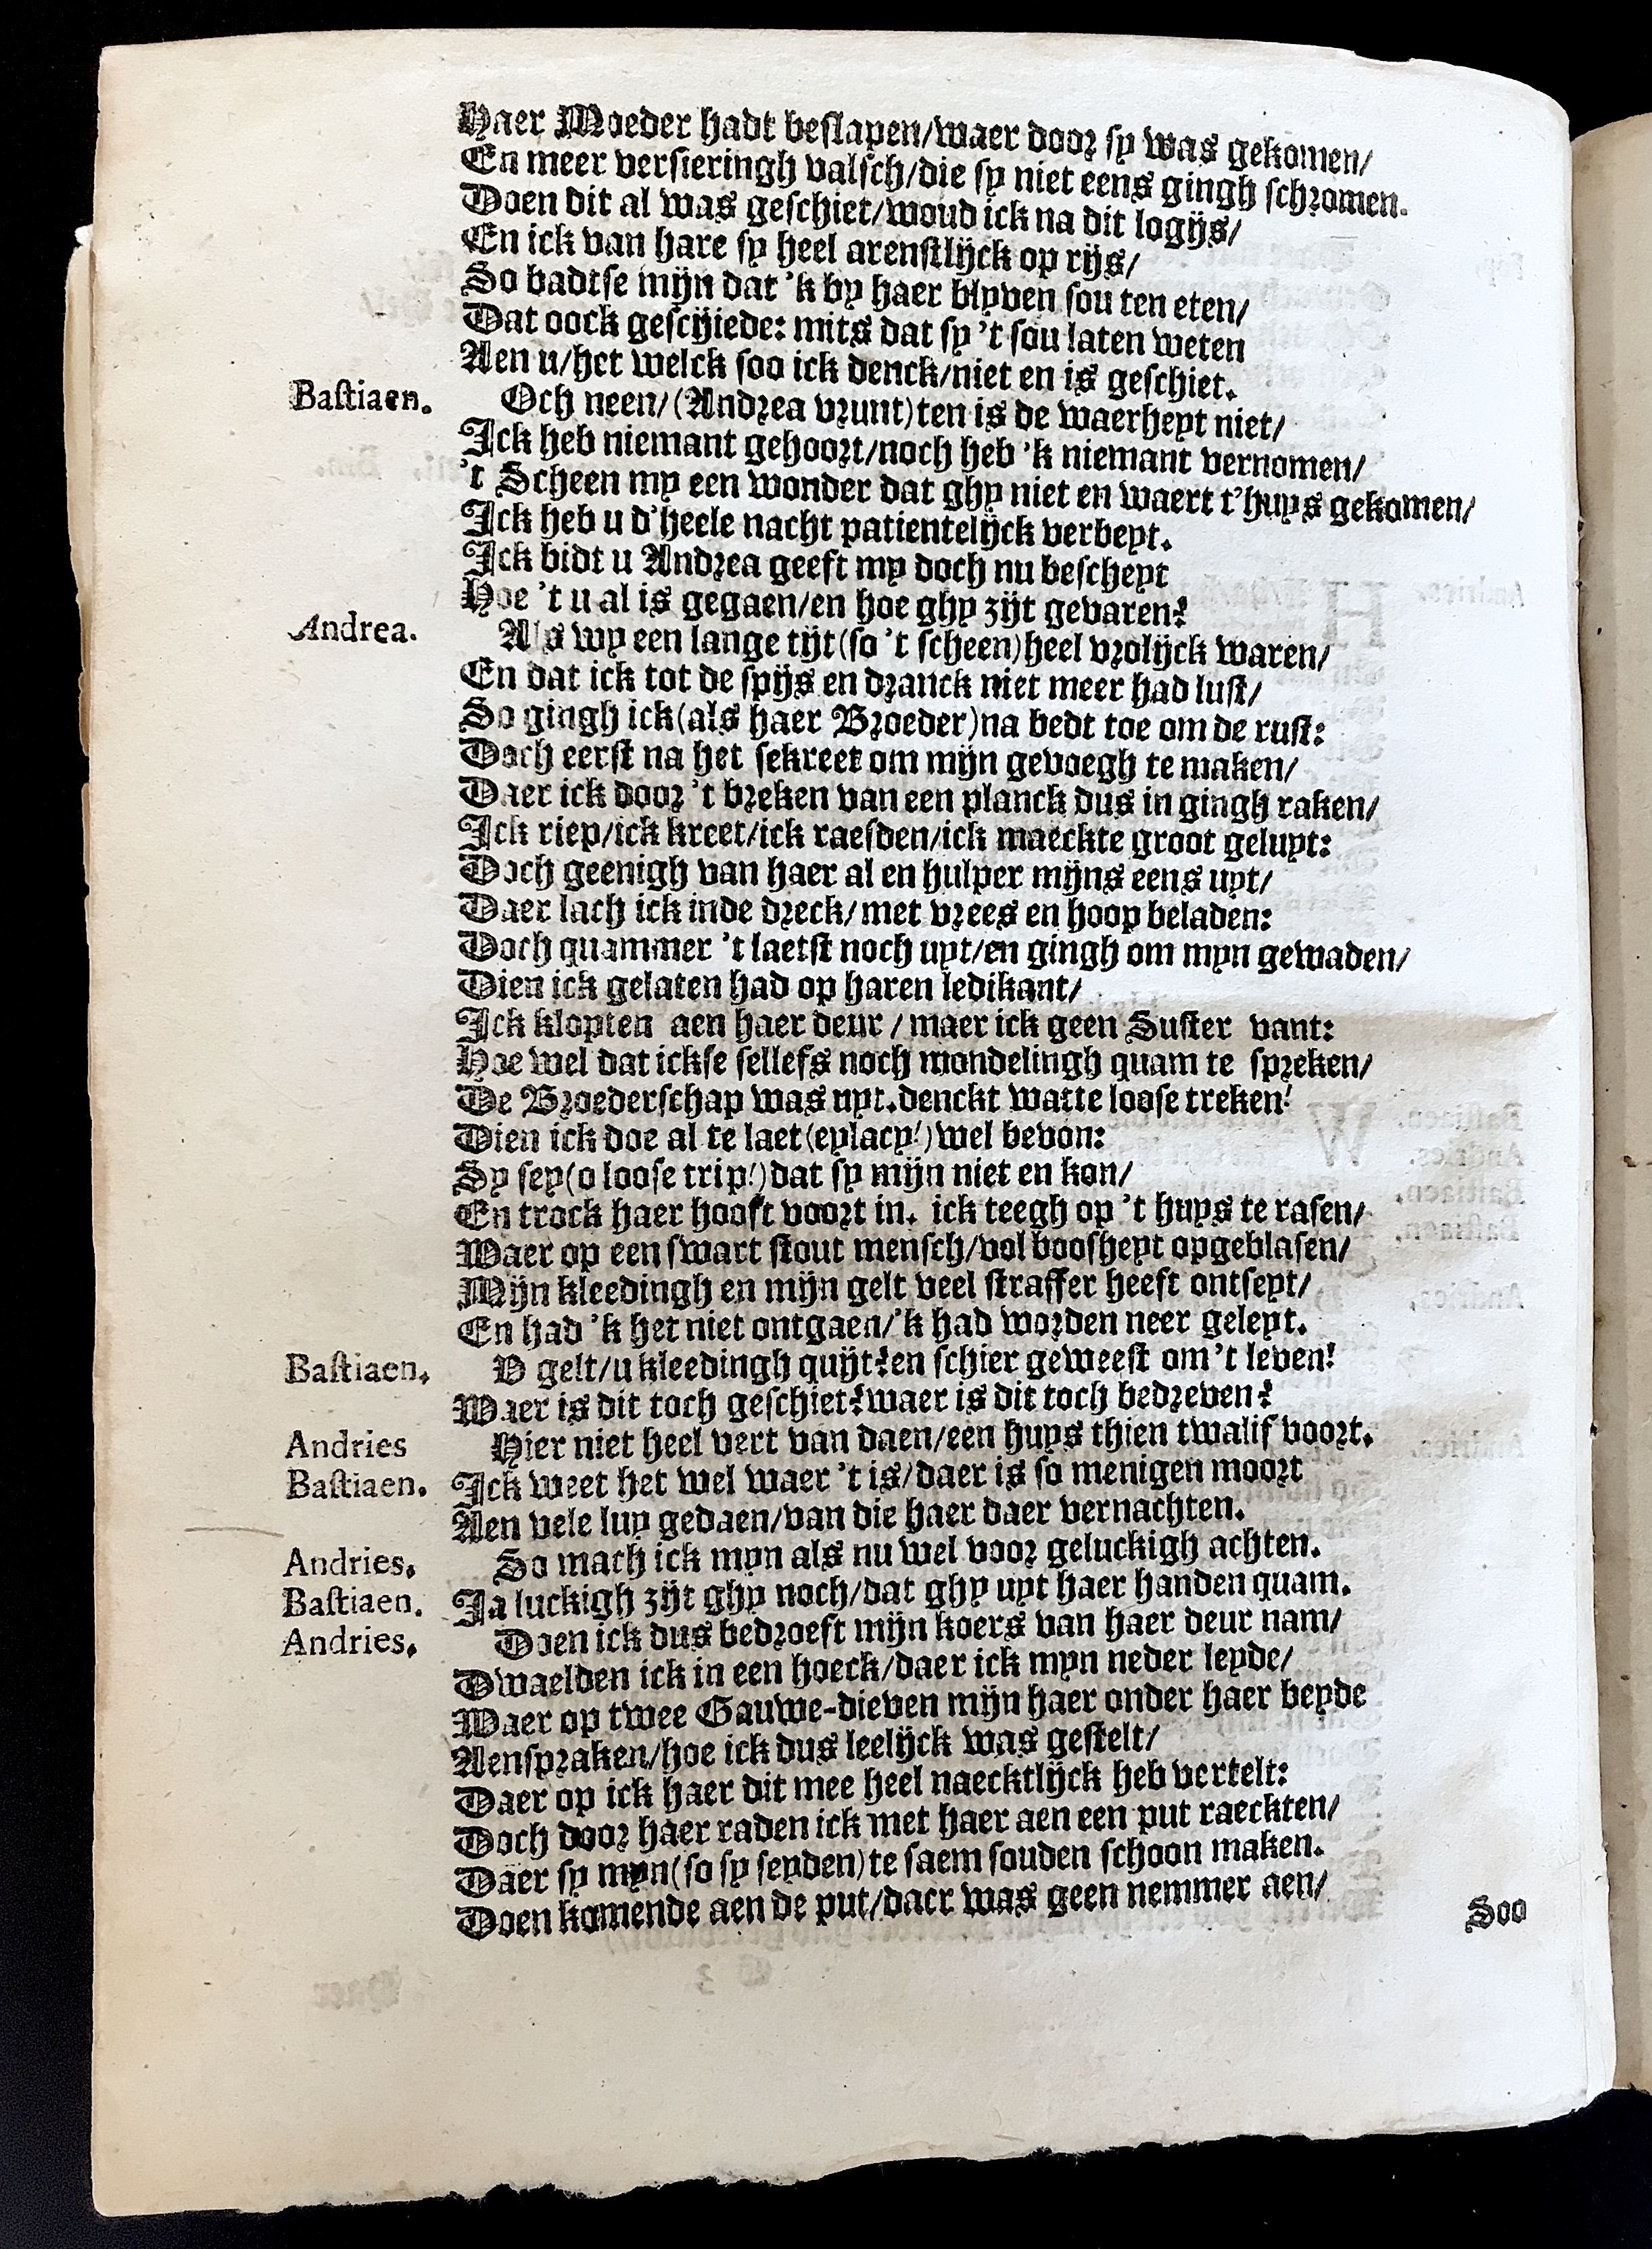 Haer Moeder hadt beslapen/waer door sy was gekomen/
En meer versieringh valsch/die sy niet eens gingh schromen.
Doen dit al was geschiet/woud ick na dit logijs/
En ick van hare sy heel arenstlijck op rijs/
So badtse mijn dat 'k by haer blyven sou ten eten/
Dat oock gescijiede: mits dat sy 't sou laten weten
Aen u/het welck soo ick denck/niet en is geschiet.
Bastiaen. Och neen/(Andrea vrunt)ten is de waerheyt niet/
Ick heb niemant gehoort/noch heb 'k niemant vernomen/
't Scheen my een wonder dat ghy niet en waert t'huys gekomen/
Ick heb u d'heele nacht patientelijck verbeyt.
Ick bidt u Andrea geeft my doch nu bescheyt
Hoe 't u al is gegaen/en hoe ghy zijt gevaren?
Andrea. Als wy een lange tijt(so 't scheen)heel vrolijck waren/
En dat ick tot de spijs en dranck niet meer had lust/
So gingh ick(als haer Broeder)na bedt toe om de rust:
Doch eerst na het sekreet om mijn gevoegh te maken/
Daer ick door 't breken van een planck dus in gingh raken/
Ick riep/ick kreet/ick raesden/ick maeckte groot geluyt:
Doch geenigh van haer al en hulper mijns eens uyt/
Daer lach ick inde dreck/met vrees en hoop beladen:
Doch quammer 't laetst noch uyt/en gingh om myn gewaden/
Dien ick gelaten had op haren ledikant/
Ick klopten aen haer deur/maer ick geen Suster vant:
Hoe wel dat ickse sellefs noch mondelingh quam te spreken/
De Broederschap was uyt.denckt watte loose treken!
Dien ick doe al te laet(eylacy!)wel bevon:
Sy sey(o loose trip!)dat sy mijn niet en kon/
En trock haer hooft voort in. ick teegh op 't huys te rasen/
Waer op een swart stout mensch/vol boosheyt opgeblasen/
Mijn kleedingh en mijn gelt veel straffer heeft ontseyt/
En had 'k het niet ontgaen/'k had worden neer geleyt.
Bastiaen. U gelt/u kleedingh quijt?en schier geweest om't leven!
Waer is dit toch geschiet?waer is dit toch bedreven?
Andries Hier niet heel vert van daen/een huys thien twalif voort.
Bastiaen. Ick weet het wel waer 't is/daer is so menigen moort
Aen vele luy gedaen/van die haer daer vernachten.
Andries. So mach ick myn als nu wel voor geluckigh achten.
Bastiaen. Ja luckigh zijt ghy noch/dat ghy uyt haer handen quam.
Andries. Doen ick dus bedroeft mijn koers van haer deur nam/
Dwaelden ick in een hoeck/daer ick myn neder leyde/
Waer op twee Gauwe-dieven mijn haer onder haer beyde
Aenspraken/hoe ick dus leelijck was gestelt/
Daer op ick haer dit mee heel naecktlijck heb vertelt:
Doch door haer raden ick met haer aen een put raeckten/
Daer sy myn(so sy seyden)te saem souden schoon maken.
Doen komende aen de put/daer was geen nemmer aen/
Soo